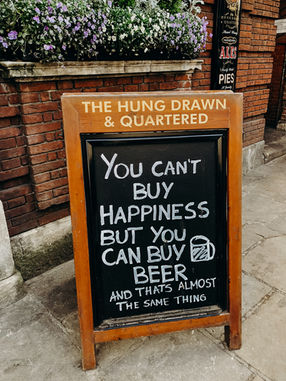 THE HUNG DRAWN
& QUARTERED
YOU CAN'T
BUY
HAPPINESS
BUT YOU
CAN BUY
BEER
AND THATS ALMOST
THE SAME THING
ALES
PIES